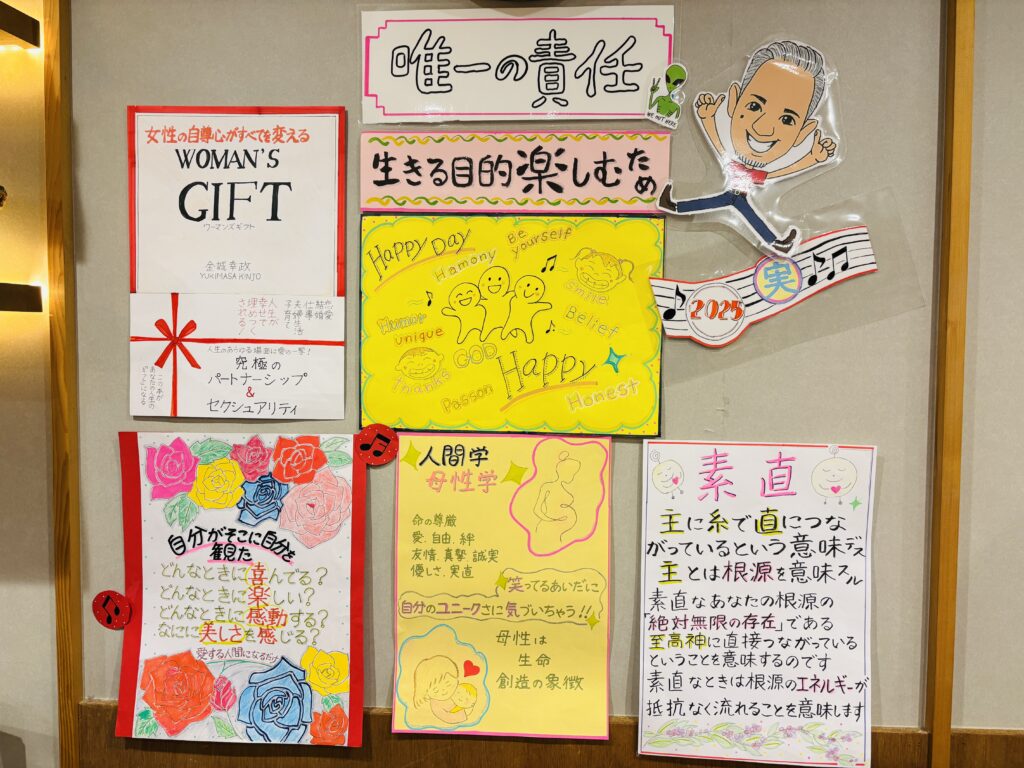 唯一の責任
WE MET HERE
生きる目的楽しむため
2025
実
女性の自尊心がすべてを変える
WOMAN'S
GIFT
ウーマンズギフト
金城幸政
YUKIMASA KINJO
恋愛
結婚
仕事
夫婦生活
子育て
人生が
幸せで
埋めつ
人生のあらゆる場面に愛の一撃!
究極の
パートナーシップ
&
セクシュアリティ
この本が
あなたの人生の
Happy Day
Be yourself
Hamony
Smile
Humor
unique
Belief
GOD
Thanks
Happy
Passon
Honest
自分がそこに自分を
観た
どんなときに喜んでる?
どんなときに楽しい?
どんなときに感動する?
なにに美しさを感じる?
愛する人間になるだけ
人間学
母性学
命の尊厳
愛.自由.絆
友情.真摯.誠実
優しさ.実直
笑ってるあいだに
自分のユニークさに気づいちゃう!!
母性は
生命
創造の象徴
素直
主に糸で直につな
がっているという意味デス
主とは根源を意味スル
素直なあなたの根源の
「絶対無限の存在」である
至高神に直接つながっている
ということを意味するのです
素直なときは根源のエネルギーが
抵抗なく流れることを意味します